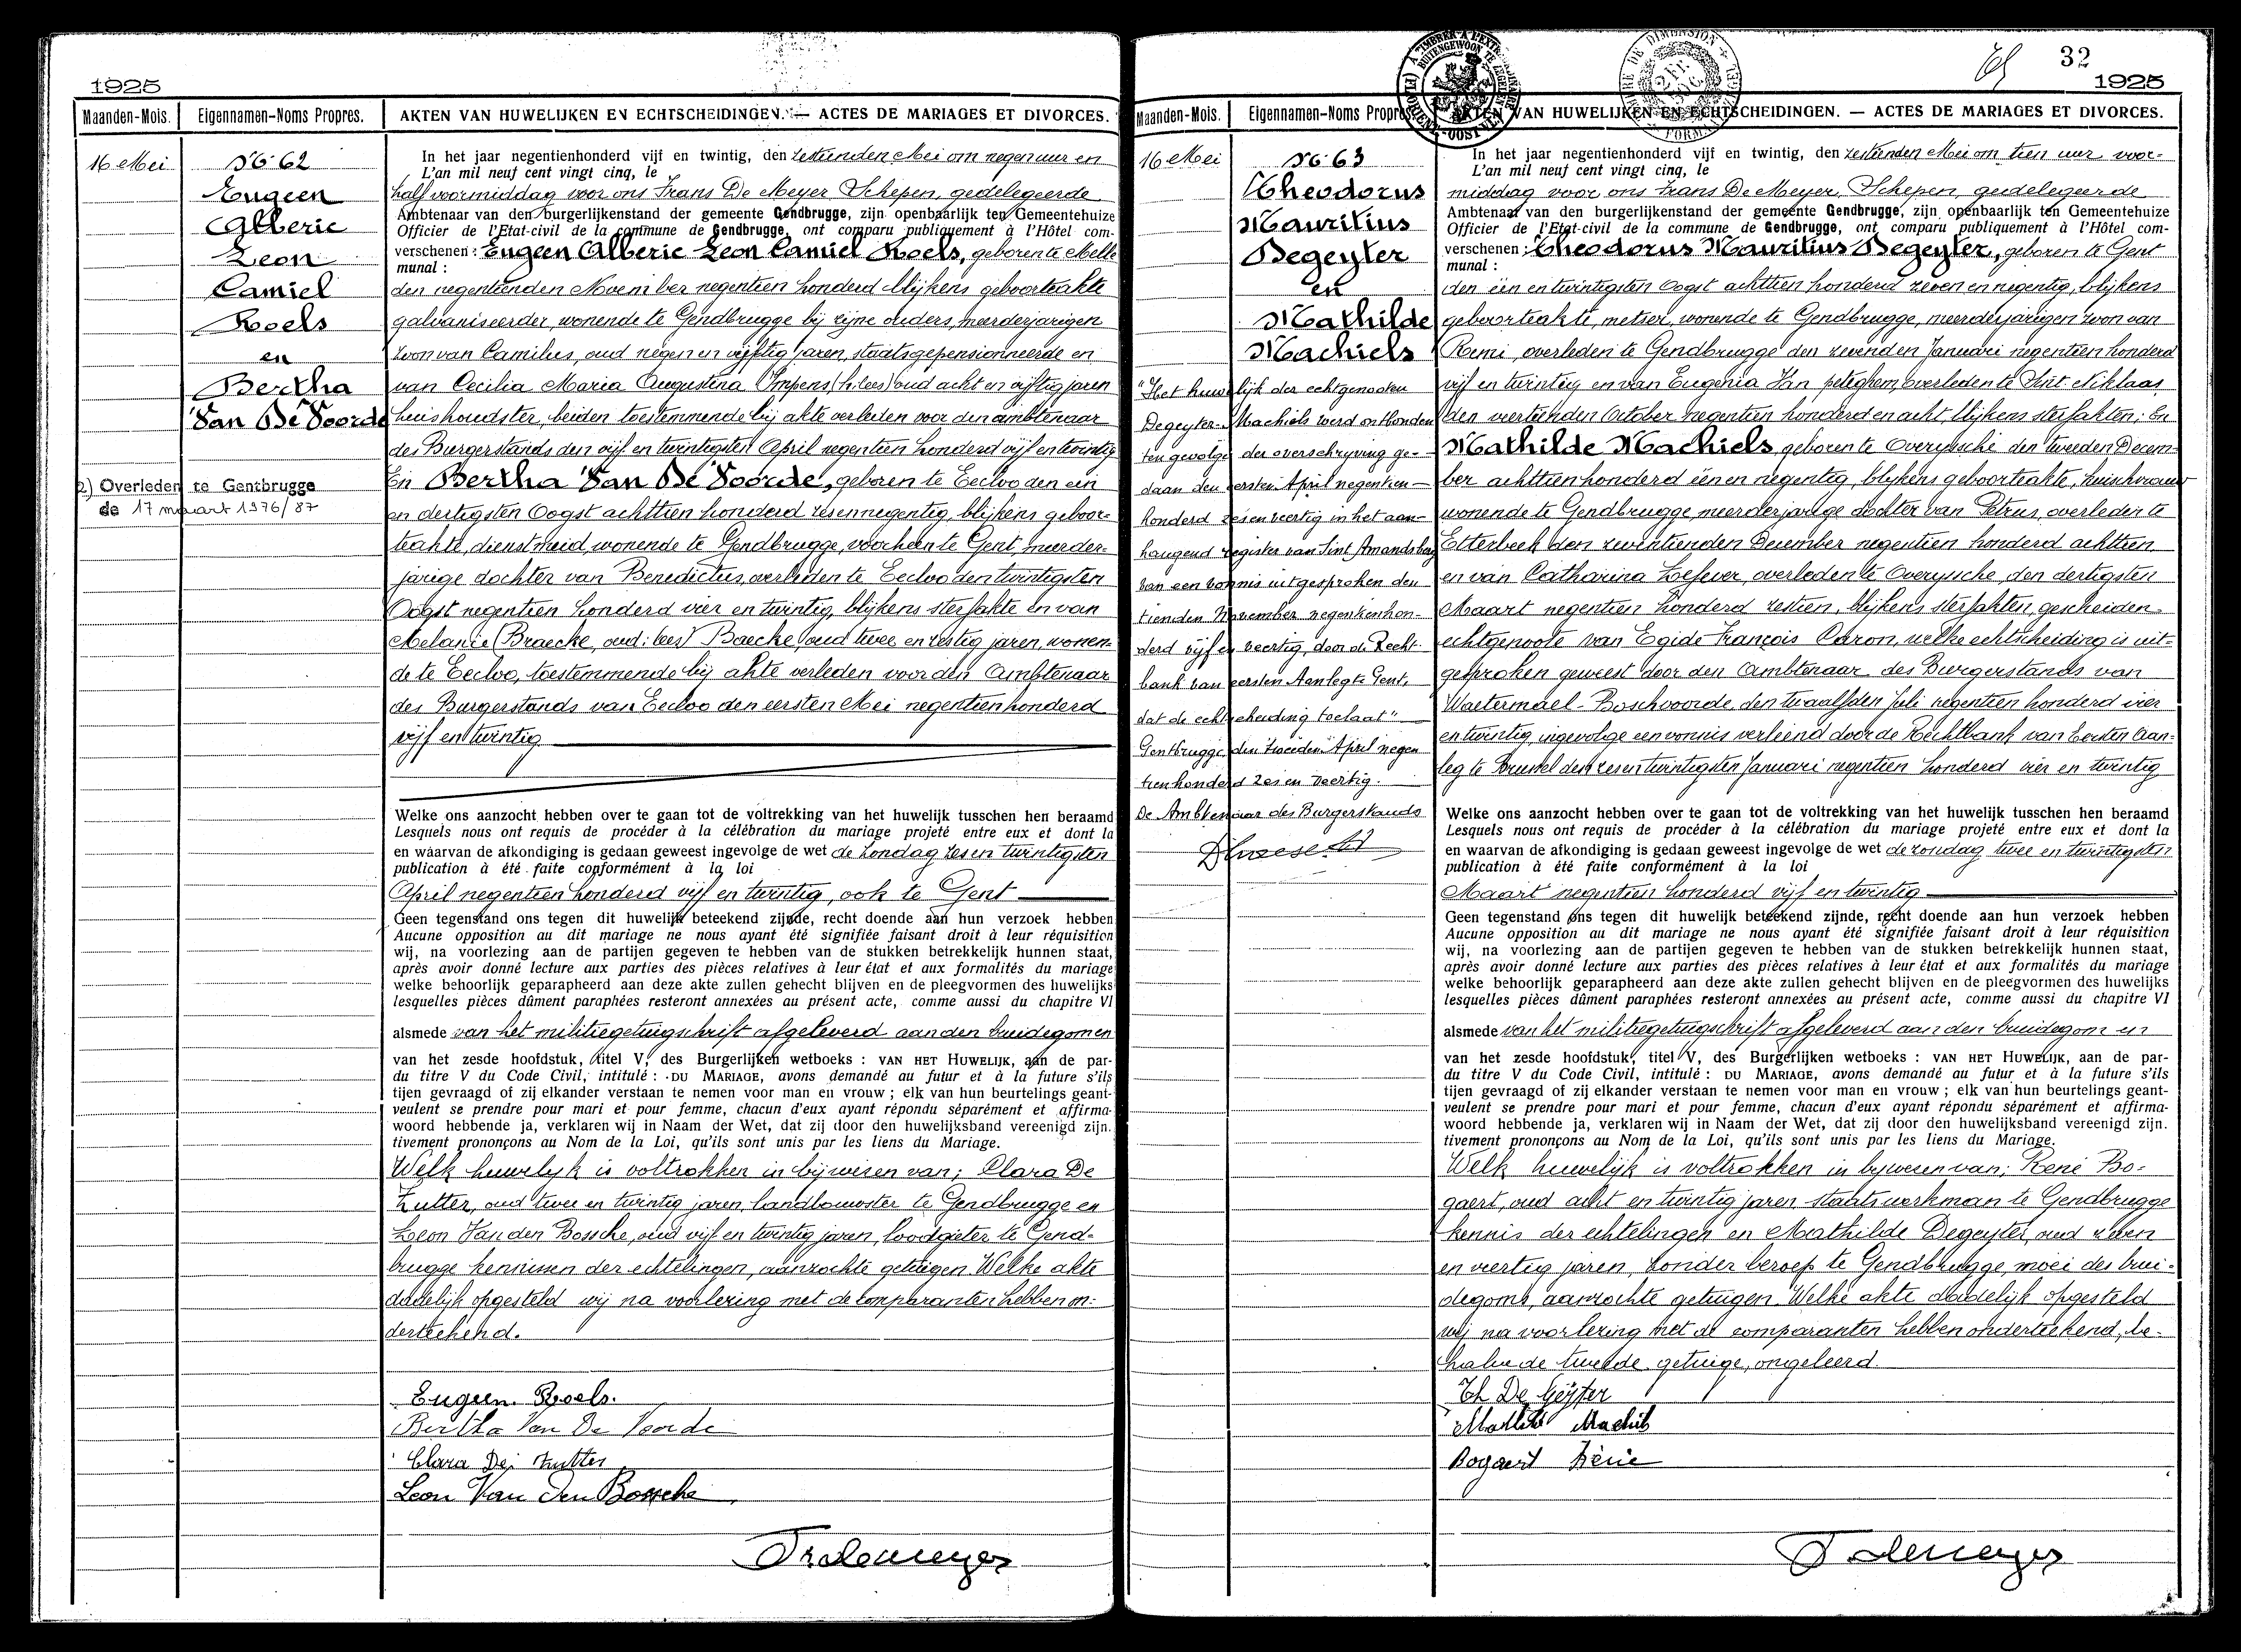 1925
Maanden-Mois.
Eigennamen-Noms Propres.
AKTEN VAN HUWELIJKEN EN ECHTSCHEIDINGEN. — ACTES DE MARIAGES ET DIVORCES.
16 Mei
No 62
Eugeen
Alberic
Leon
Camiel
Roels
en
Bertha
Van De Voorde
2) Overleden te Gentbrugge
de 17 maart 1976/87
In het jaar negentienhonderd vijf en twintig, den zestienden Mei om negen uur en
L'an mil neuf cent vingt cinq, le
half voormiddag voor ons Frans De Meyer Schepen, gedelegeerde
Ambtenaar van den burgerlijkenstand der gemeente Gendbrugge, zijn openbaarlijk ten Gemeentehuize
Officier de l'Etat-civil de la commune de Gendbrugge, ont comparu publiquement à l'Hôtel com-
verschenen : Eugeen Alberic Leon Camiel Roels, geboren te Melle
munal :
den negentienden November negentien honderd blijkens geboorteakte
galvaniseerder, wonende te Gendbrugge bij zijne ouders, meerderjarigen
zoon van Camilus, oud negen en vijftig jaren, staatsgepensionneerde en
van Cecilia Maria Augustina Impens (h. lees) oud acht en vijftig jaren
huishoudster, beiden toestemmende bij akte verleden voor den ambtenaar
des Burgerstands den vijf en twintigsten April negentien honderd vijf en twintig
En Bertha Van De Voorde, geboren te Eecloo den een
en dertigsten Oogst achttien honderd zes en negentig, blijkens geboor-
teakte, dienstmeid, wonende te Gendbrugge, voorheen te Gent, meerder-
jarige dochter van Benedictus, overleden te Eecloo den twintigsten
Oogst negentien honderd vier en twintig, blijkens sterfakte en van
Melanie (Braecke, oud: lees) Baecke, oud twee en zestig jaren, wonen-
de te Eecloo, toestemmende bij akte verleden voor den Ambtenaar
des Burgerstands van Eecloo den eersten Mei negentien honderd
vijf en twintig
Welke ons aanzocht hebben over te gaan tot de voltrekking van het huwelijk tusschen hen beraamd
Lesquels nous ont requis de procéder à la célébration du mariage projeté entre eux et dont la
en waarvan de afkondiging is gedaan geweest ingevolge de wet de zondag zes en twintigsten
publication à été faite conformément à la loi
April negentien honderd vijf en twintig, ook te Gent
Geen tegenstand ons tegen dit huwelijk beteekend zijnde, recht doende aan hun verzoek hebben
Aucune opposition au dit mariage ne nous ayant été signifiée faisant droit à leur réquisition
wij, na voorlezing aan de partijen gegeven te hebben van de stukken betrekkelijk hunnen staat,
après avoir donné lecture aux parties des pièces relatives à leur état et aux formalités du mariage
welke behoorlijk geparapheerd aan deze akte zullen gehecht blijven en de pleegvormen des huwelijks
lesquelles pièces dûment paraphées resteront annexées au présent acte, comme aussi du chapitre VI
alsmede van het militiegetuigschrift afgeleverd aan den bruidegom en
van het zesde hoofdstuk, titel V, des Burgerlijken wetboeks : VAN HET HUWELIJK, aan de par-
du titre V du Code Civil, intitulé : DU MARIAGE, avons demandé au futur et à la future s'ils
tijen gevraagd of zij elkander verstaan te nemen voor man en vrouw ; elk van hun beurtelings geant-
veulent se prendre pour mari et pour femme, chacun d'eux ayant répondu séparément et affirma-
woord hebbende ja, verklaren wij in Naam der Wet, dat zij door den huwelijksband vereenigd zijn.
tivement prononçons au Nom de la Loi, qu'ils sont unis par les liens du Mariage.
Welk huwelijk is voltrokken in bijwezen van; Clara De
Zutter, oud twee en twintig jaren, landbouwster te Gendbrugge en
Leon Van den Bossche, oud vijf en twintig jaren, loodgieter te Gend-
brugge kennissen der echtelingen, aanzochte getuigen. Welke akte
dadelijk opgesteld wij na voorlezing met de comparanten hebben on-
derteekend.
Eugeen Roels.
Bertha Van De Voorde
Clara De Zutter
Leon Van den Bossche
Fr demeyer
32
1925
Maanden-Mois.
Eigennamen-Noms Propres.
AKTEN VAN HUWELIJKEN EN ECHTSCHEIDINGEN. — ACTES DE MARIAGES ET DIVORCES.
16 Mei
No 63
Theodorus
Mauritius
Degeyter
en
Mathilde
Machiels
"Het huwelijk der echtgenooten
Degeyter-Machiels werd ontbonden
ten gevolge der overschrijving ge-
daan den eersten April negentien-
honderd zes en veertig in het aan-
hangend register van Sint Amandsberg
van een vonnis uitgesproken den
tienden November negentienhon-
derd vijf en veertig, door de Recht-
bank van eersten Aanleg te Gent,
dat de echtscheiding toelaat"
Gentbrugge den tweeden April negen
tienhonderd zes en veertig.
De Ambtenaar des Burgerstands
In het jaar negentienhonderd vijf en twintig, den zestienden Mei om tien uur voor-
L'an mil neuf cent vingt cinq, le
middag voor ons Frans De Meyer, Schepen, gedelegeerde
Ambtenaar van den burgerlijkenstand der gemeente Gendbrugge, zijn openbaarlijk ten Gemeentehuize
Officier de l'Etat-civil de la commune de Gendbrugge, ont comparu publiquement à l'Hôtel com-
verschenen : Theodorus Mauritius Degeyter, geboren te Gent
munal :
den een en twintigsten Oogst achttien honderd zeven en negentig, blijkens
geboorteakte, metser, wonende te Gendbrugge, meerderjarigen zoon van
Remi, overleden te Gendbrugge den zevenden Januari negentien honderd
vijf en twintig en van Eugenia Van peteghem, overleden te Sint Niklaas
den veertienden October negentien honderd en acht, blijkens sterfakten; En
Mathilde Machiels, geboren te Overyssche den tweeden Decem-
ber achttienhonderd één en negentig, blijkens geboorteakte, huisvrouw
wonende te Gendbrugge, meerderjarige dochter van Petrus, overleden te
Etterbeek den zeventienden December negentien honderd achttien
en van Catharina Lefever, overleden te Overyssche, den dertigsten
Maart negentien honderd zestien, blijkens sterfakten, gescheiden-
echtgenoote van Egide François Caron, welke echtscheiding is uit-
gesproken geweest door den Ambtenaar des Burgerstands van
Watermael-Boschvoorde, den twaalfden Juli negentien honderd vier
en twintig, ingevolge een vonnis verleend door de Rechtbank van Eersten Aan-
leg te Brussel den zes en twintigsten Januari negentien honderd vier en twintig
Welke ons aanzocht hebben over te gaan tot de voltrekking van het huwelijk tusschen hen beraamd
Lesquels nous ont requis de procéder à la célébration du mariage projeté entre eux et dont la
en waarvan de afkondiging is gedaan geweest ingevolge de wet de zondag twee en twintigsten
publication à été faite conformément à la loi
Maart negentien honderd vijf en twintig
Geen tegenstand ons tegen dit huwelijk beteekend zijnde, recht doende aan hun verzoek hebben
Aucune opposition au dit mariage ne nous ayant été signifiée faisant droit à leur réquisition
wij, na voorlezing aan de partijen gegeven te hebben van de stukken betrekkelijk hunnen staat,
après avoir donné lecture aux parties des pièces relatives à leur état et aux formalités du mariage
welke behoorlijk geparapheerd aan deze akte zullen gehecht blijven en de pleegvormen des huwelijks
lesquelles pièces dûment paraphées resteront annexées au présent acte, comme aussi du chapitre VI
alsmede van het militiegetuigschrift afgeleverd aan den bruidegom en
van het zesde hoofdstuk, titel V, des Burgerlijken wetboeks : VAN HET HUWELIJK, aan de par-
du titre V du Code Civil, intitulé : DU MARIAGE, avons demandé au futur et à la future s'ils
tijen gevraagd of zij elkander verstaan te nemen voor man en vrouw ; elk van hun beurtelings geant-
veulent se prendre pour mari et pour femme, chacun d'eux ayant répondu séparément et affirma-
woord hebbende ja, verklaren wij in Naam der Wet, dat zij door den huwelijksband vereenigd zijn.
tivement prononçons au Nom de la Loi, qu'ils sont unis par les liens du Mariage.
Welk huwelijk is voltrokken in bywezen van; René Bo-
gaert, oud acht en twintig jaren staatswerkman te Gendbrugge
kennis der echtelingen en Mathilde Degeyter, oud zeven
en veertig jaren, zonder beroep te Gendbrugge, moei des brui-
degoms, aanzochte getuigen. Welke akte dadelijk opgesteld
wij na voorlezing met de comparanten hebben onderteekend, be-
halve de tweede getuige, ongeleerd.
Th De Geyter
Mathilde Machils
Bogaert Réné
F demeyer